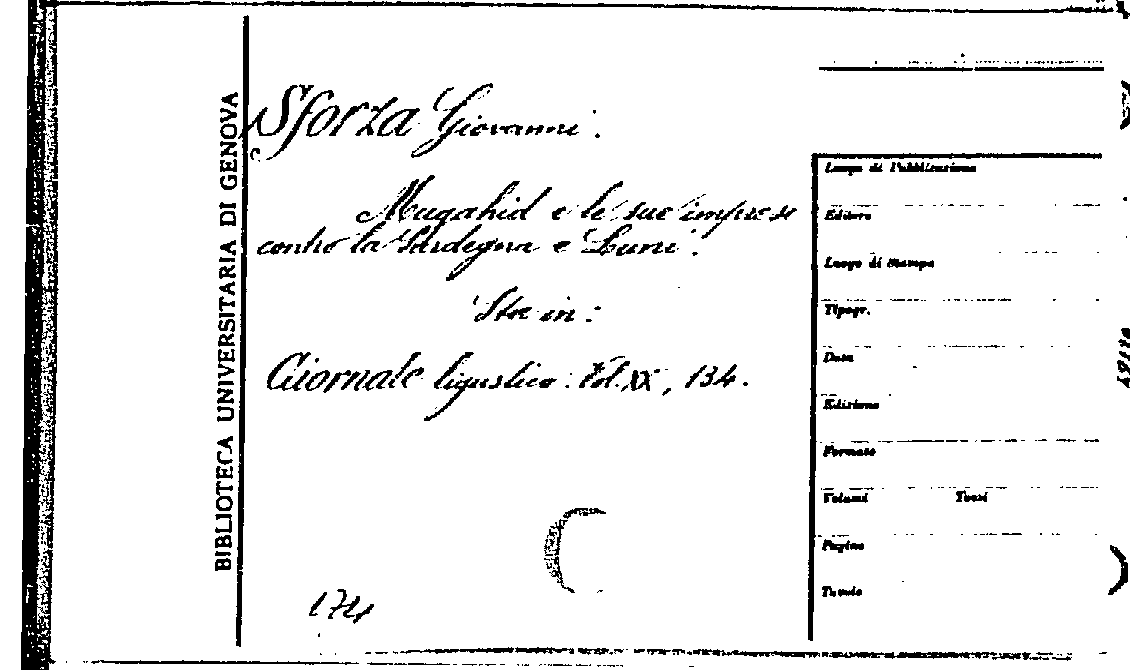 BIBLIOTECA UNIVERSITARIA DI GENOVA
Sforza Giovanni.
Mugahid e le sue imprese
contro la Sardegna e Luni.
Sta in:
Giornale ligustico. Vol. XX, 134.
174
Luogo di Pubblicazione
Editore
Luogo di Stampa
Tipogr.
Data
Edizione
Formato
Volumi Tomi
Pagine
Tavole